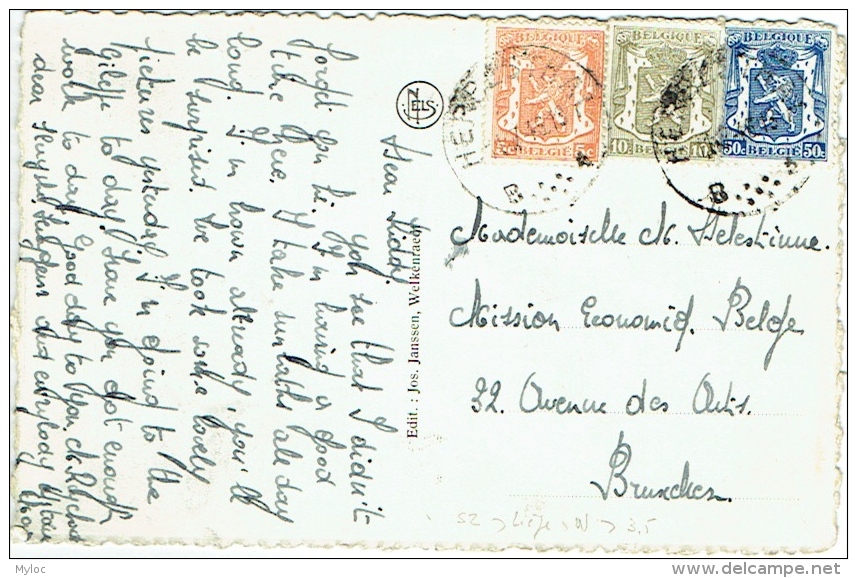 Dear Kiddy,
you see that I didn't
forget you. I'm having a good
time here. I take sunbaths all day
long. I'm brown already, you'll
be surprised. We took some lovely
pictures yesterday. I'm going to the
Gileppe to day. Have you got enough
work to day? Good day to you, M.
dear and everybody
NELS
Edit.: Jos. Janssen, Welkenraedt
BELGIQUE
5c
BELGIË
5c
BELGIQUE
10c
BELGIË
10c
BELGIQUE
50c
BELGIË
50c
B
B
Mademoiselle M. Helestinne.
Mission Economiq. Belge
32. Avenue des Arts.
Bruxelles.
52 > Liège > W > 3,5
Myloc
www.delcampe.net